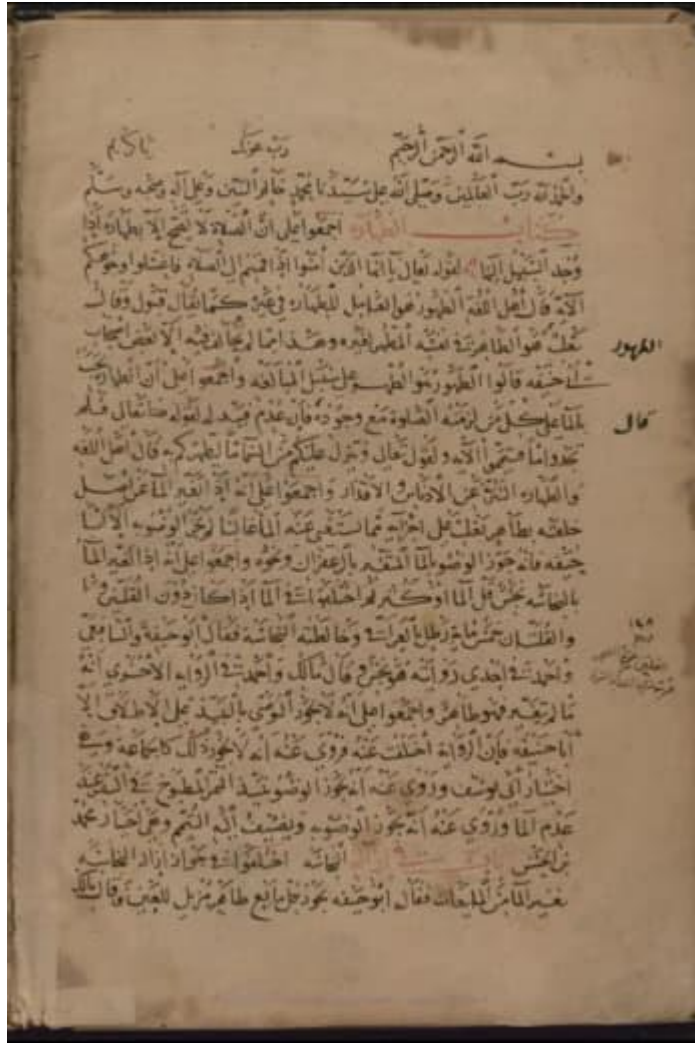 بسم الله الرحمن الرحيم رب عونك يا كريم
والحمد لله رب العالمين وصلى الله على سيدنا محمد خاتم النبيين وعلى آله وصحبه وسلم
كتاب الطهارة اجمعوا على ان الصلاة لا تصح الا بطهارة اذا
وجد السبيل اليها لقوله تعالى يا ايها الذين امنوا اذا قمتم الى الصلاة فاغسلوا وجوهكم
الآية قال اهل اللغة الطهور هو الفاعل للطهارة في غيره كما يقال قتول وقال
ثعلب هو الطاهر في نفسه المطهر لغيره وهذا مما لم يخالف فيه الا بعض اصحاب
ابي حنيفه قالوا الطهور هو الطاهر على سبيل المبالغه واجمعوا على ان الطهارة تجب
بالماء على كل من لزمته الصلوة مع وجوده فان عدم فبدله لقوله تعالى فلم
تجدوا ماء فتيمموا الآية ولقوله تعالى وينزل عليكم من السماء ماء ليطهركم به قال اهل اللغه
والطهارة التنزه عن الادناس والاقذار واجمعوا على انه اذا تغير الماء عن اصل
خلقته بطاهر يغلب على اجزائه مما يستغنى عنه الماء غالبا لم يجز الوضوء به الا ابا
حنيفه فانه جوز الوضو بالماء المتغير بالزعفران ونحوه واجمعوا على انه اذا تغير الماء
بالنجاسه نجس قل الماء او كثر ثم اختلفوا في الماء اذا كان دون القلتين
والقلتان خمس مايه رطل بالعراقي وخالطته النجاسة فقال ابو حنيفة والشافعي
واحمد في احدى روايتيه هو نجس وقال مالك واحمد في الروايه الاخرى انه
ما لم يتغير فهو طاهر واجمعوا على انه لا يجوز التوضي بالنبيذ على الاطلاق الا
ابا حنيفه فان الرواية اختلفت عنه فروي عنه انه لا يجوز ذلك كالجماعة وهي
اختيار ابي يوسف وروي عنه انه يجوز الوضو بنبيذ التمر المطبوخ في السفر عند
عدم الماء وروي عنه انه يجوز الوضوء به ويضيف اليه التيمم وهي اختيار محمد
بن الحسن باب في ازالة النجاسه اختلفوا في جواز ازالة النجاسه
بغير الماء من المايعات فقال ابو حنيفه يجوز بكل مايع طاهر مزيل للعين وقال مالك
الطهور
قال